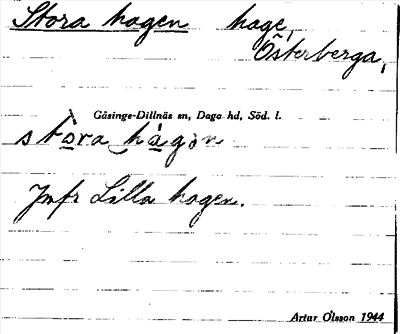 Stora hagen hage,
Österberga,
Gåsinge-Dillnäs sn, Daga hd, Söd. l.
stòra hàgən
Jmfr Lilla hagen.
Artur Olsson 1944